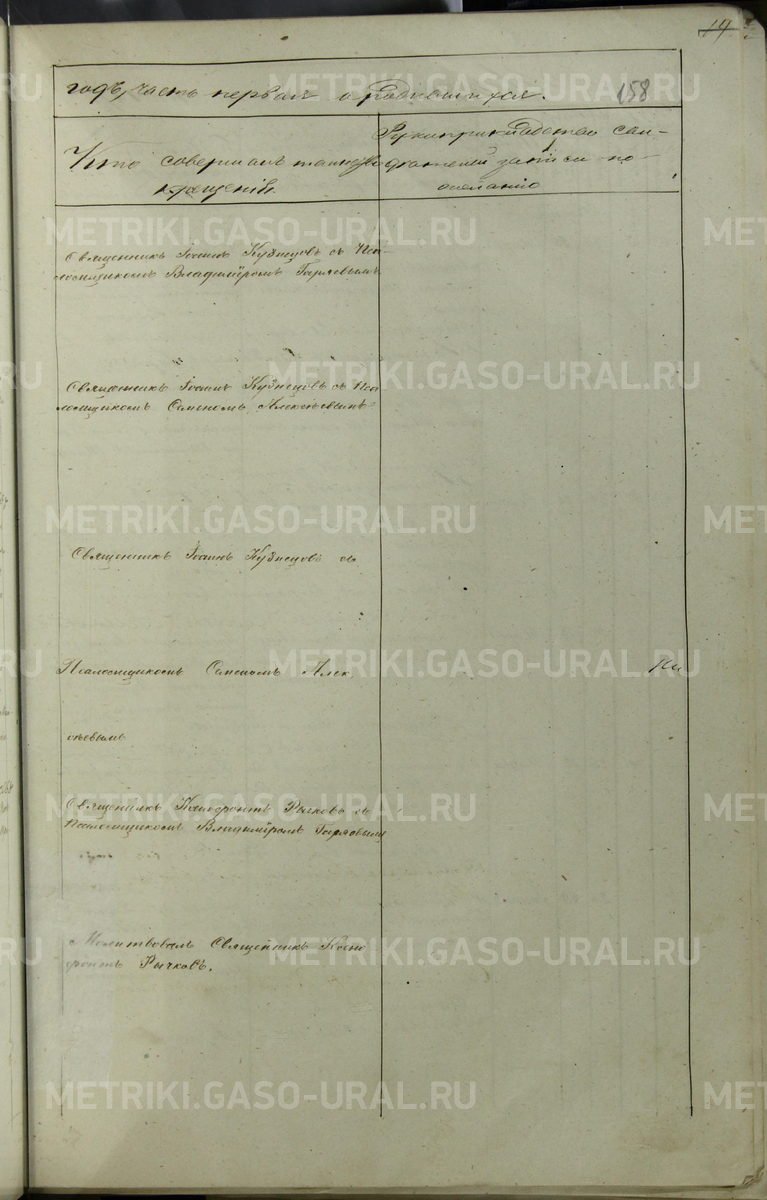 14
158
годъ, часть первая о родившихся.
Кто совершалъ таинство
крещенія.
Рукоприкладство сви-
дѣтелей записи по
желанію
Священникъ Іоаннъ Кузнецовъ съ Пса-
ломщикомъ Владиміромъ Гиряевымъ
Священникъ Іоаннъ Кузнецовъ съ Пса
ломщикомъ Семеномъ Алексѣевымъ
Священникъ Іоаннъ Кузнецовъ съ
Псаломщикомъ Семеномъ Алек
сѣевымъ
Священникъ Рычковъ съ
Псаломщикомъ Владиміромъ Гиряевымъ
Молитвовалъ Священникъ
Рычковъ.
METRIKI.GASO-URAL.RU